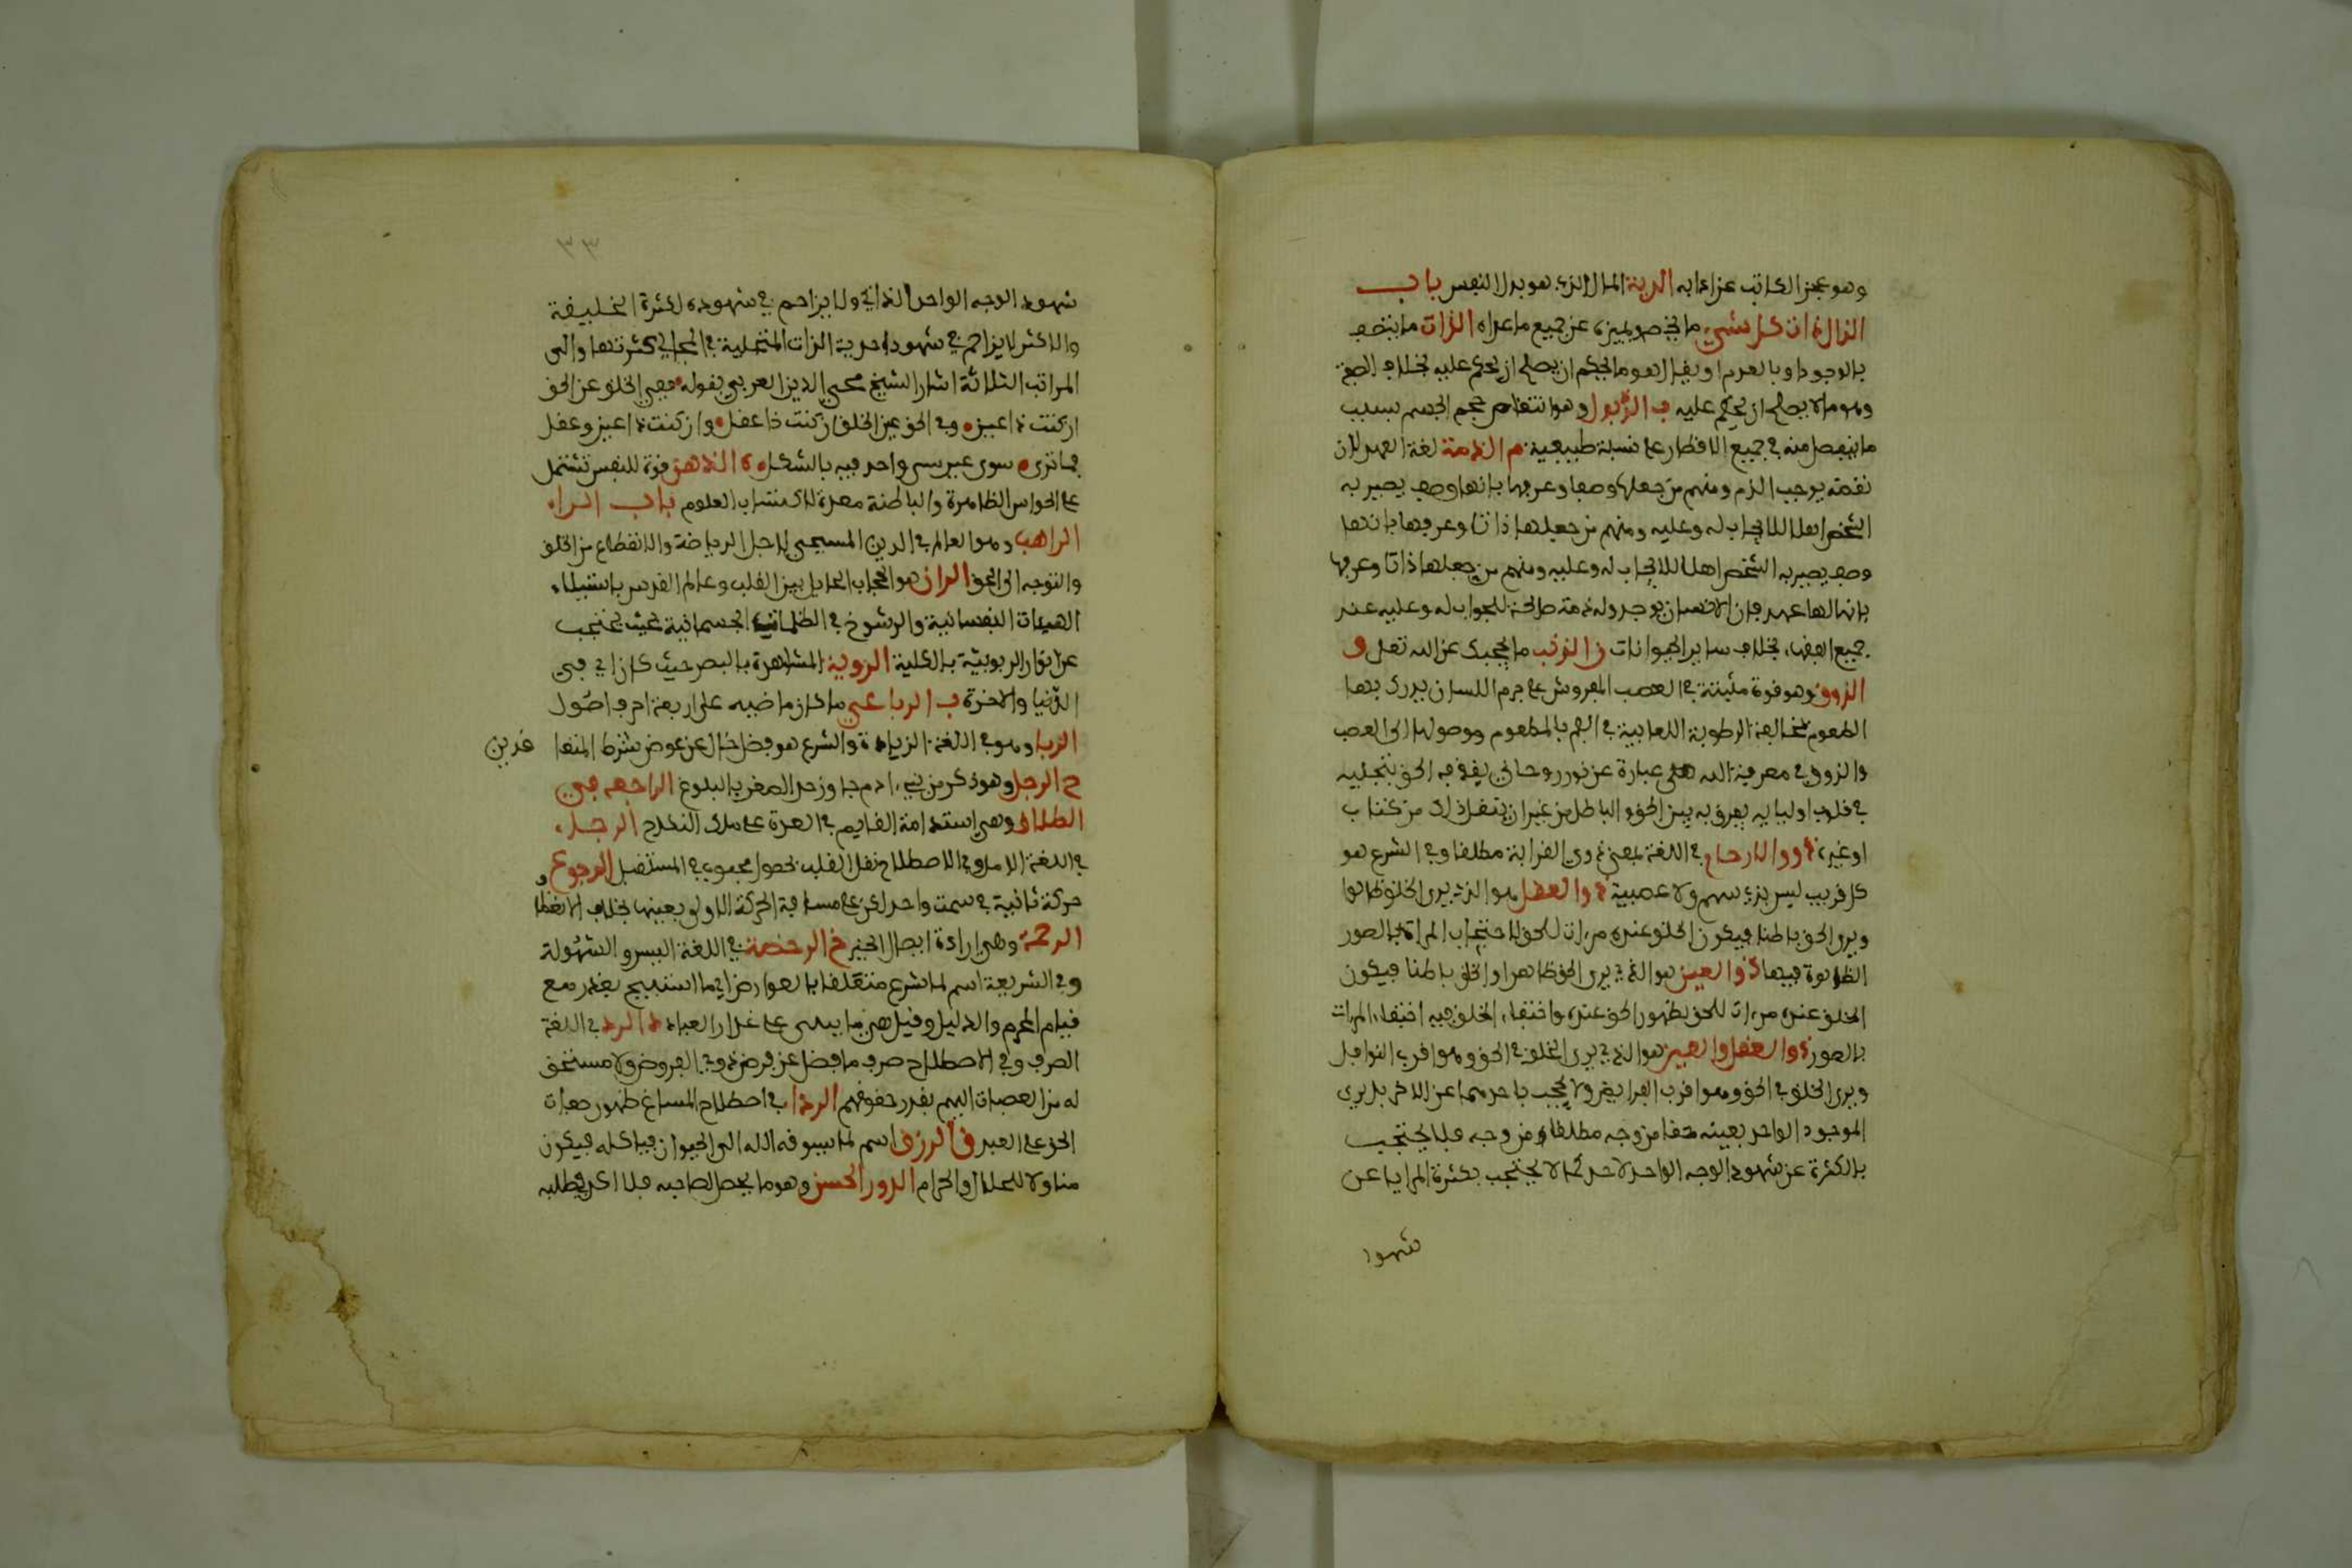 وهو عجز الكاتب عن ادايه الدية المال الذي هو بدل النفس باب
الذال ذات كل شيء ما يخصه ويميزه عن جميع ما عداه الذات ما يتصف
بالوجود او بالعدم او يقال هو ما يحكم ان يصلح ان يحكم عليه بخلاف الصفة
وهو ما لا يصلح ان يحكم عليه ب الذبول وهو انتقاص حجم الجسم بسبب
ما ينفصل منه في جميع الاقطار على نسبة طبيعية م الذمة لغة العهد لان
نقضه يوجب الذم ومنهم من جعلها وصفا وعرفها بانها وصف يصير به
الشخص اهلا للايجاب له وعليه ومنهم من جعلها ذاتا وعرفها بانها
وصف يصير به الشخص اهلا للايجاب له وعليه ومنهم من جعلها ذاتا وعرفها
بانها لها عهد فان الانسان يوجد وله ذمة صالحة للجواب له وعليه عند
جميع الفقهاء بخلاف ساير الحيوانات ن الذنب ما يحجبك عن الله تعلى و
الذوق وهو قوة مثبتة في العصب المفروش على جرم اللسان يدرك بها
الطعوم بمخالفة الرطوبة اللعابية في الفم بالمطعوم ووصولها الى العصب
والذوق في معرفة الله هي عبارة عن نور روحاني يقذفه الحق بتجليه
في قلوب اوليايه يفرق به بين الحق والباطل من غير ان ينقل ذلك من كتاب
او غيره ذوو الارحام في اللغة بمعنى ذوي القرابة مطلقا وفي الشرع هو
كل قريب ليس بذي سهم ولا عصبية ذو العقل هو الذي يرى الخلق ظاهرا
ويرى الحق باطنا فيكون الخلق عنده مرءات للحق لاحتجاب المراة بالصور
الظاهرة فيها ذو العين هو الذي يرى الحق ظاهرا والخلق باطنا فيكون
الخلق عنده مرءات للحق بظهور الحق عنده واختفاء الخلق فيه اختفاء المرءات
بالصور ذو العقل والعين هو الذي يرى الخلق في الحق وهو اقرب النوافل
ويرى الخلق في الحق وهو اقرب الفرايض ولا يحجب باحدهما عن الاخر بل يرى
الموجود الواحد بعينه حقا من وجه مطلقا ومن وجه فلا يحتجب
بالكثرة عن شهود الوجه الواحد لاحد كما لا يحتجب بكثرة المرايا عن
شهود
٣٣
شهود الوجه الواحد الذاتي ولا يزاحم في شهوده لكثرة الخليقة
والاكثر لا يزاحم في شهود احدية الذات المتجلية في المجالي كثرتها والى
المراتب الثلاثة اشار الشيخ محيي الدين العربي بقوله ففي الخلق عن الحق
ان كنت ذا عين وفي الحق عين الخلق ان كنت ذا عقل وان كنت ذا عين وعقل
فما ترى سوى عين شي واحد فيه بالشكل ه الذهن قوة للنفس تشتمل
على الحواس الظاهرة والباطنة معدة لاكتساب العلوم باب الراء
الراهب وهو العالم في الدين المسيحي لاجل الرياضة والانقطاع من الخلق
والتوجه الى الحق الران هو الحجاب الحايل بين القلب وعالم القدس باستيلاء
الهيئات النفسانية والرشوخ في الظلمانية الجسمانية بحيث يحتجب
عن انوار الربوبية بالكلية الروية المشاهدة بالبصر حيث كان اي في
الدنيا والاخرة ب الرباعي ما كان ماضيه على اربعة احرف اصول
الربا وهو في اللغة الزيادة والشرع هو فضل خال عن عوض شرط المتعا قدين
ج الرجل وهو ذكر من بني ءادم جاوز حد الصغر بالبلوغ الراجعه في
الطلاق وهي استدامة القايم في العدة على ملك النكاح الرجاء
في اللغة الامل وفي الاصطلاح تعلق القلب بحصول محبوب في المستقبل الرجوع
حركة ثانية في سمت واحد لكن على مسافة الحركة الاولى بعينها بخلاف الانعطاف
الرحمة وهي ارادة ايصال الخير خ الرخصة في اللغة اليسر والسهولة
وفي الشريعة اسم لما شرع متعلقا بالعوارض اي ما استبيح بعذر مع
قيام المحرم والدليل وقيل هي ما يبنى على اعذار العباد د الرد في اللغة
الصرف وفي الاصطلاح صرف ما فضل عن فرض ذوي الفروض ولا مستحق
له من العصبات اليهم بقدر حقوقهم الرداء في اصطلاح المشايخ ظهور صفات
الحق على العبد ف الرزق اسم لما يسوقه الله الى الحيوان فياكله فيكون
متناولا للحلال والحرام الرزق الحسن وهو ما يصل لصاحبه بلا كد في طلبه